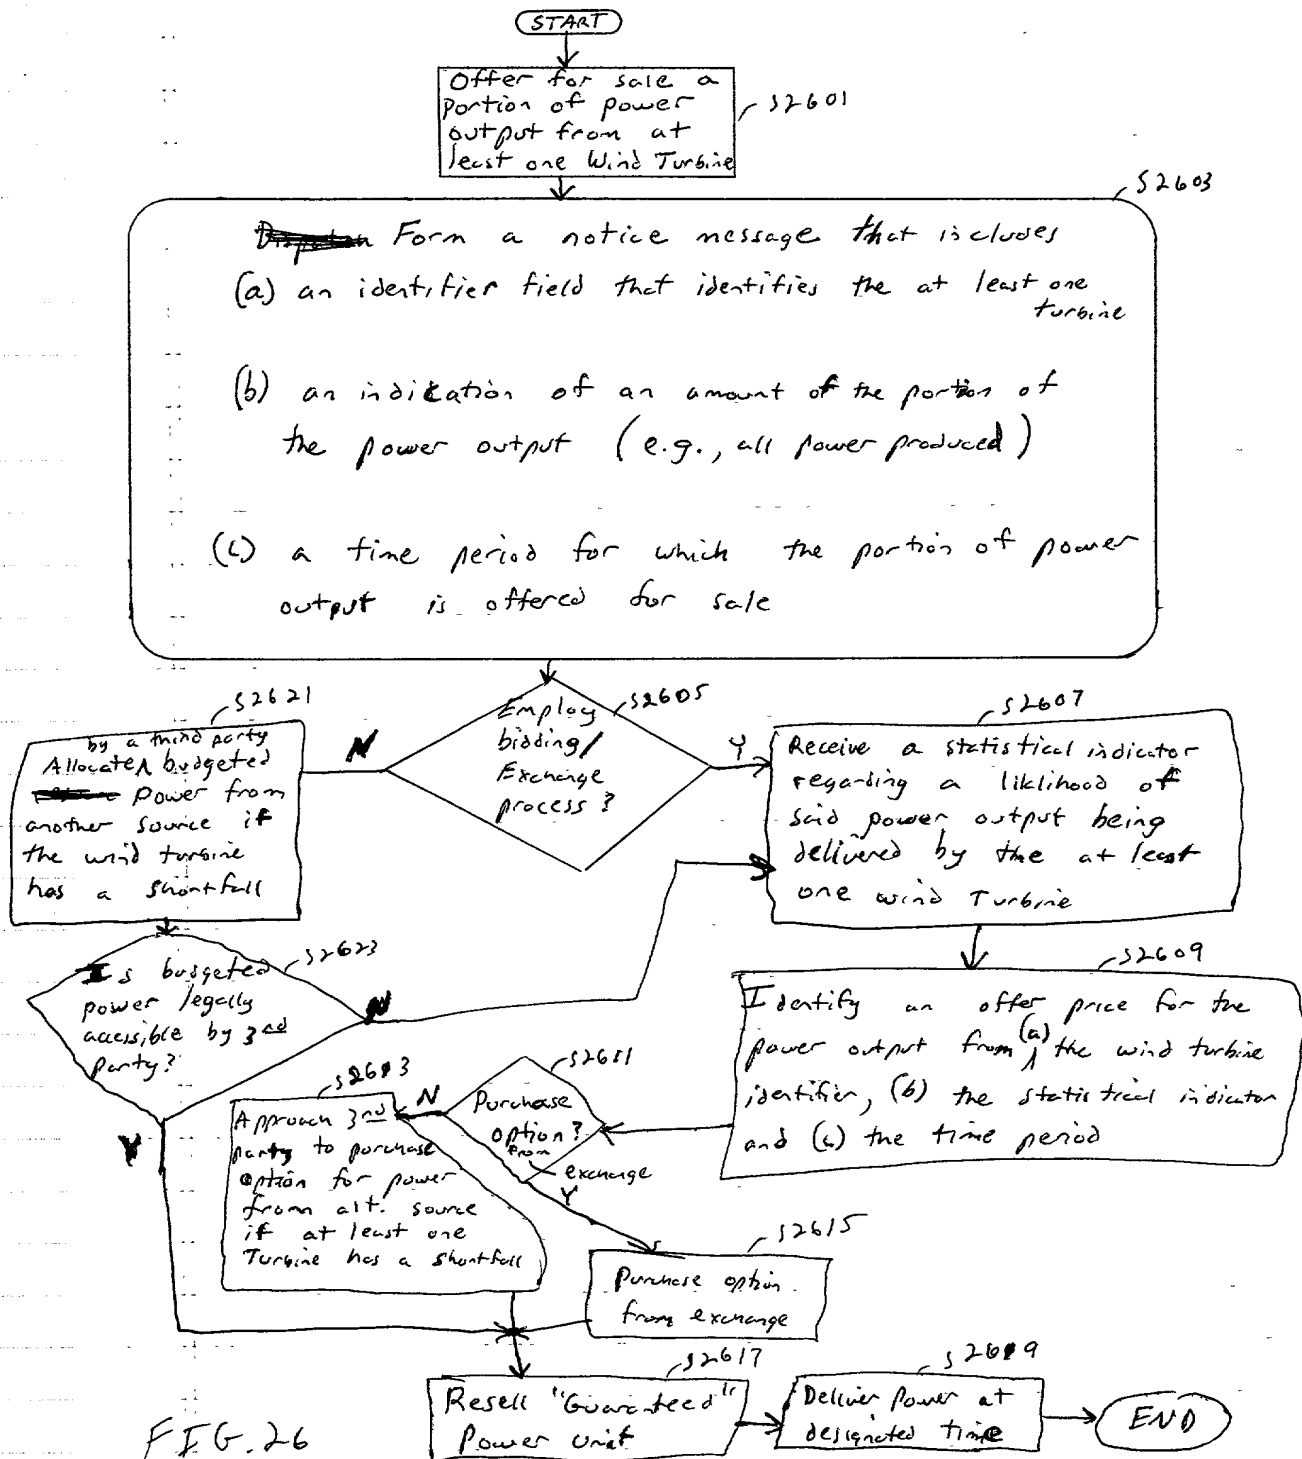 START
Offer for sale a
portion of power
output from at
least one Wind Turbine
S2601
S2603
Form a notice message that includes
(a) an identifier field that identifies the at least one
turbine
(b) an indication of an amount of the portion of
the power output (e.g., all power produced)
(c) a time period for which the portion of power
output is offered for sale
S2621
by a third party
Allocate budgeted
power from
another source if
the wind turbine
has a shortfall
N
S2605
Employ
bidding/
Exchange
process?
Y
S2607
Receive a statistical indicator
regarding a liklihood of
said power output being
delivered by the at least
one wind Turbine
S2623
Is budgeted
power legally
accessible by 3rd
party?
N
Y
S2609
Identify an offer price for the
power output from (a) the wind turbine
identifier, (b) the statistical indicator
and (c) the time period
S2611
Purchase
option?
from
exchange
N
Y
S2613
Approach 3rd
party to purchase
option for power
from alt. source
if at least one
Turbine has a shortfall
S2615
Purchase option
from exchange
S2617
Resell "Guaranteed"
Power unit
S2619
Deliver Power at
designated time
END
FIG. 26